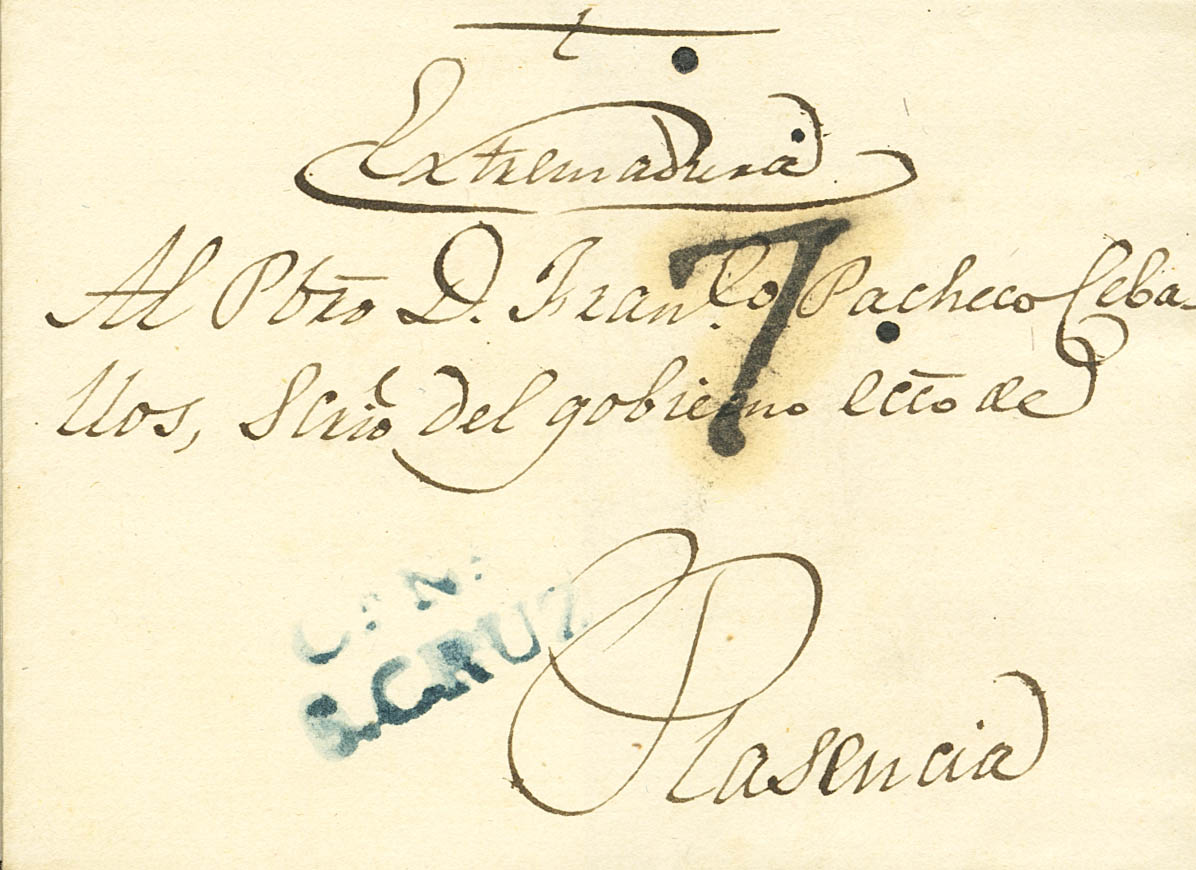 Extremadura
Al Pbro D. Fran.co Pacheco Ceba-
llos, Scrio del gobierno ecco de
7
CAN.
S.CRUZ
Plasencia